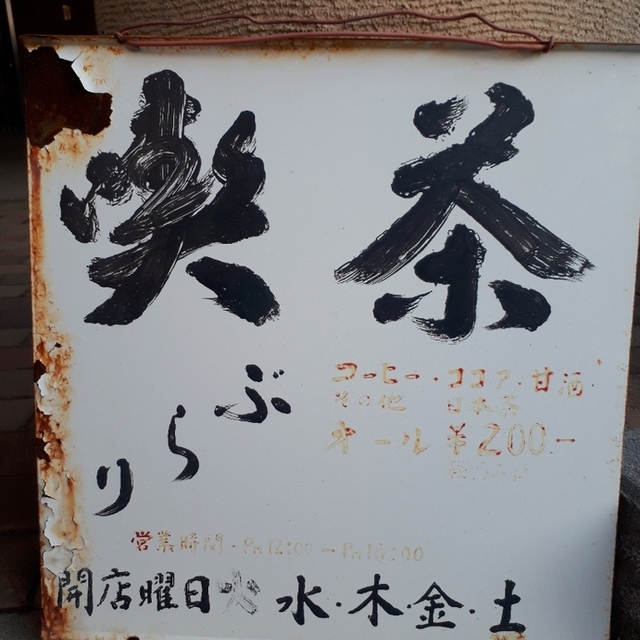 喫茶
ぶらり
コーヒー・ココア・甘酒
その他 日本茶
オール ¥200.-
営業時間・Pm12:00-Pm16:00
開店曜日 火 水・木・金・土